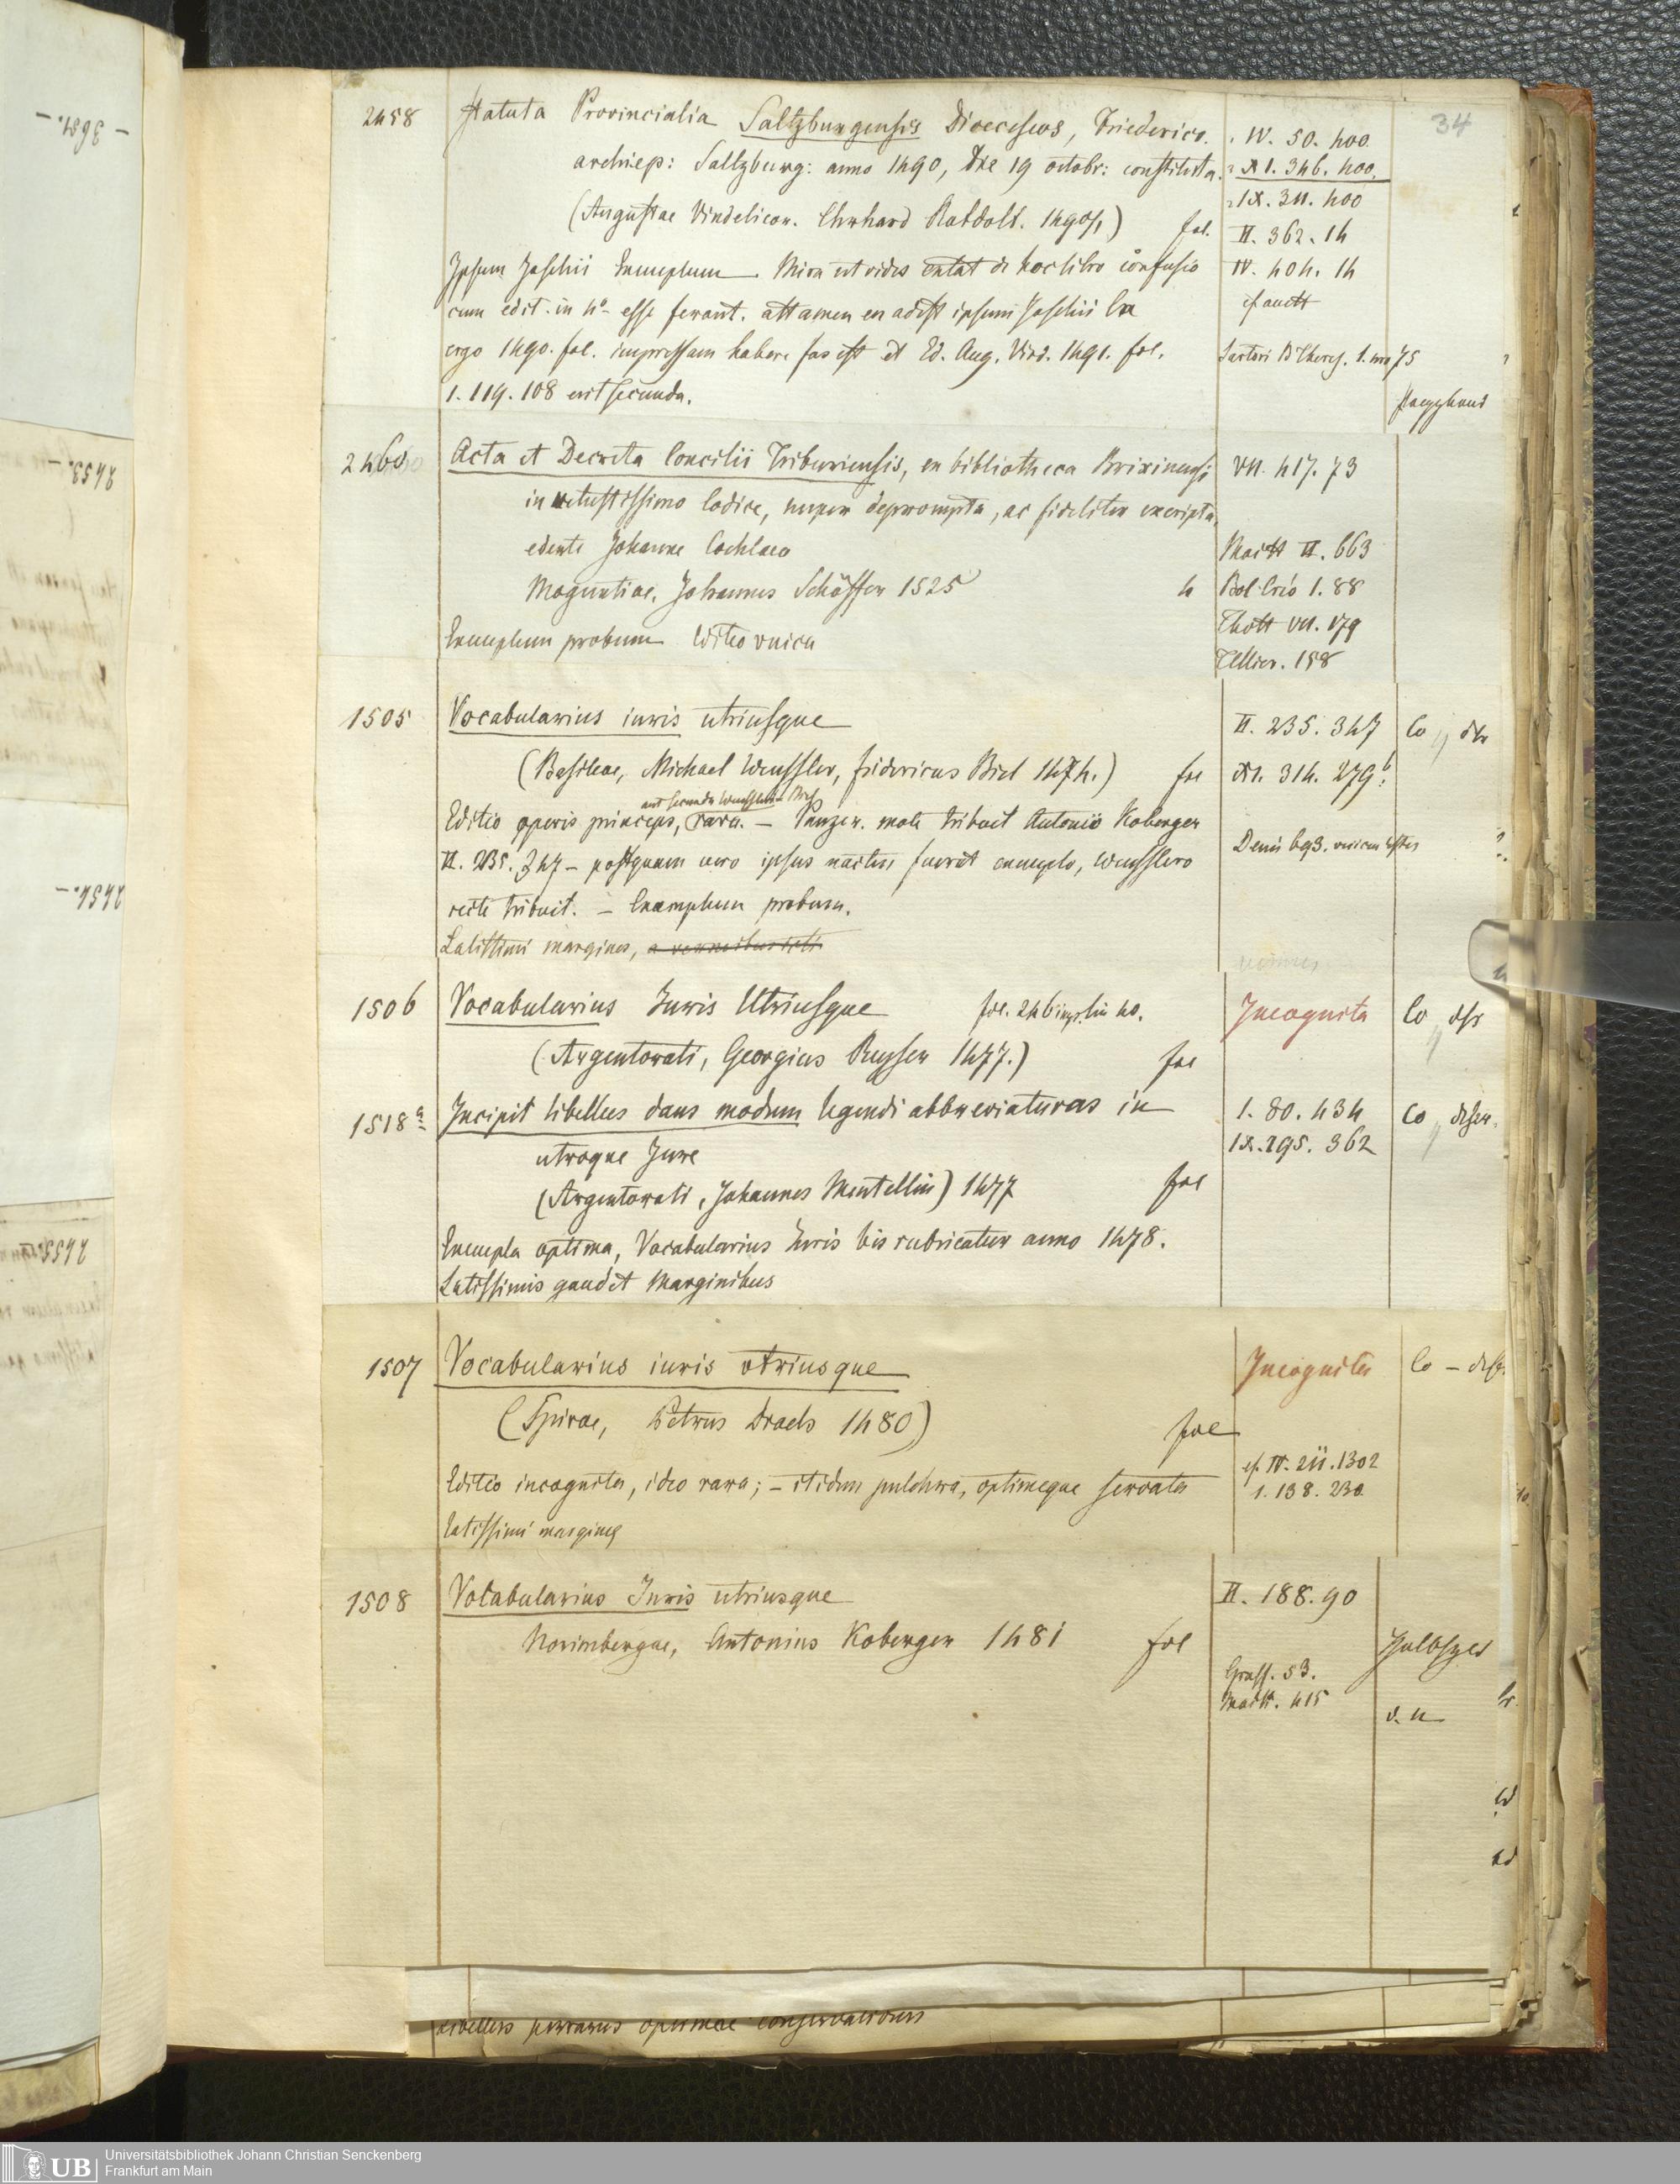 34
2458 Statuta Provincialia Saltzburgensis Dioeceseos, Friederico.
archiep: Saltzburg: anno 1490, die 19 octobr: constituta.
(Augustae Vindelicor. Erhard Ratdolt. 1490/1) fol.
IV. 50. 400.
XI. 346. 400.
IX. 311. 400
II. 362. 14
IV. 404. 14
Ipsum Exemplum. Mira ut vides extat de hoc libro confusio
cum edit. in 4o esse ferant. attamen en adest ipsum
ergo 1490. fol. impressam habere fas est et Ed. Aug. Vind. 1491. fol.
1. 119. 108 erit secunda.
2460 Acta et Decreta Concilii Triburiensis, ex bibliotheca Brixinensi
in vetustissimo Codice, nuper deprompta, ac fideliter excripta,
edente Johanne Cochlaeo
Moguntiae, Johannes Schöffer 1525 4
Exemplum probum Editio unica
VII. 417. 73
Maitt II. 663
Thott VII. 179
Tellier. 158
1505 Vocabularius iuris utriusque
(Basileae, Michael Wenssler, fridericus Biel 1474.) fol
Editio operis princeps, rara. – Panzer. male tribuit Antonio Koberger
II. 235. 347 – postquam vero ipsus nactus fuerat exemplo, Wensslero
recte tribuit. – Exemplum probum.
Latissimi margines,
II. 235. 347
XI. 314. 279b.
Co
1506 Vocabularius Juris Utriusque fol. 246 lin 40.
(Argentorati, Georgius Reyser 1477.) fol
Incognita Co
1518a Incipit libellus dans modum legendi abbreviaturas in
utroque Jure
(Argentorati, Johannes Mentellin) 1477 fol
Exempla optima, Vocabularius Juris bis rubricatur anno 1478.
Latissimis gaudet Marginibus
1. 80. 434
IX. 195. 362
Co
1507 Vocabularius iuris utriusque
(Spirae, Petrus Drach 1480) fol
Editio incognita, ideo rara; – itidem pulchra, optimeque servata
Latissimi margines
Incognita
Co –
cf. IV. 211. 1302
1. 138. 230
1508 Vocabularius Juris utriusque
Norimbergae, Antonius Koberger 1481 fol
II. 188. 90
Maitt. 415
libellus perrarus optimae conservationis
UB
Universitätsbibliothek Johann Christian Senckenberg
Frankfurt am Main